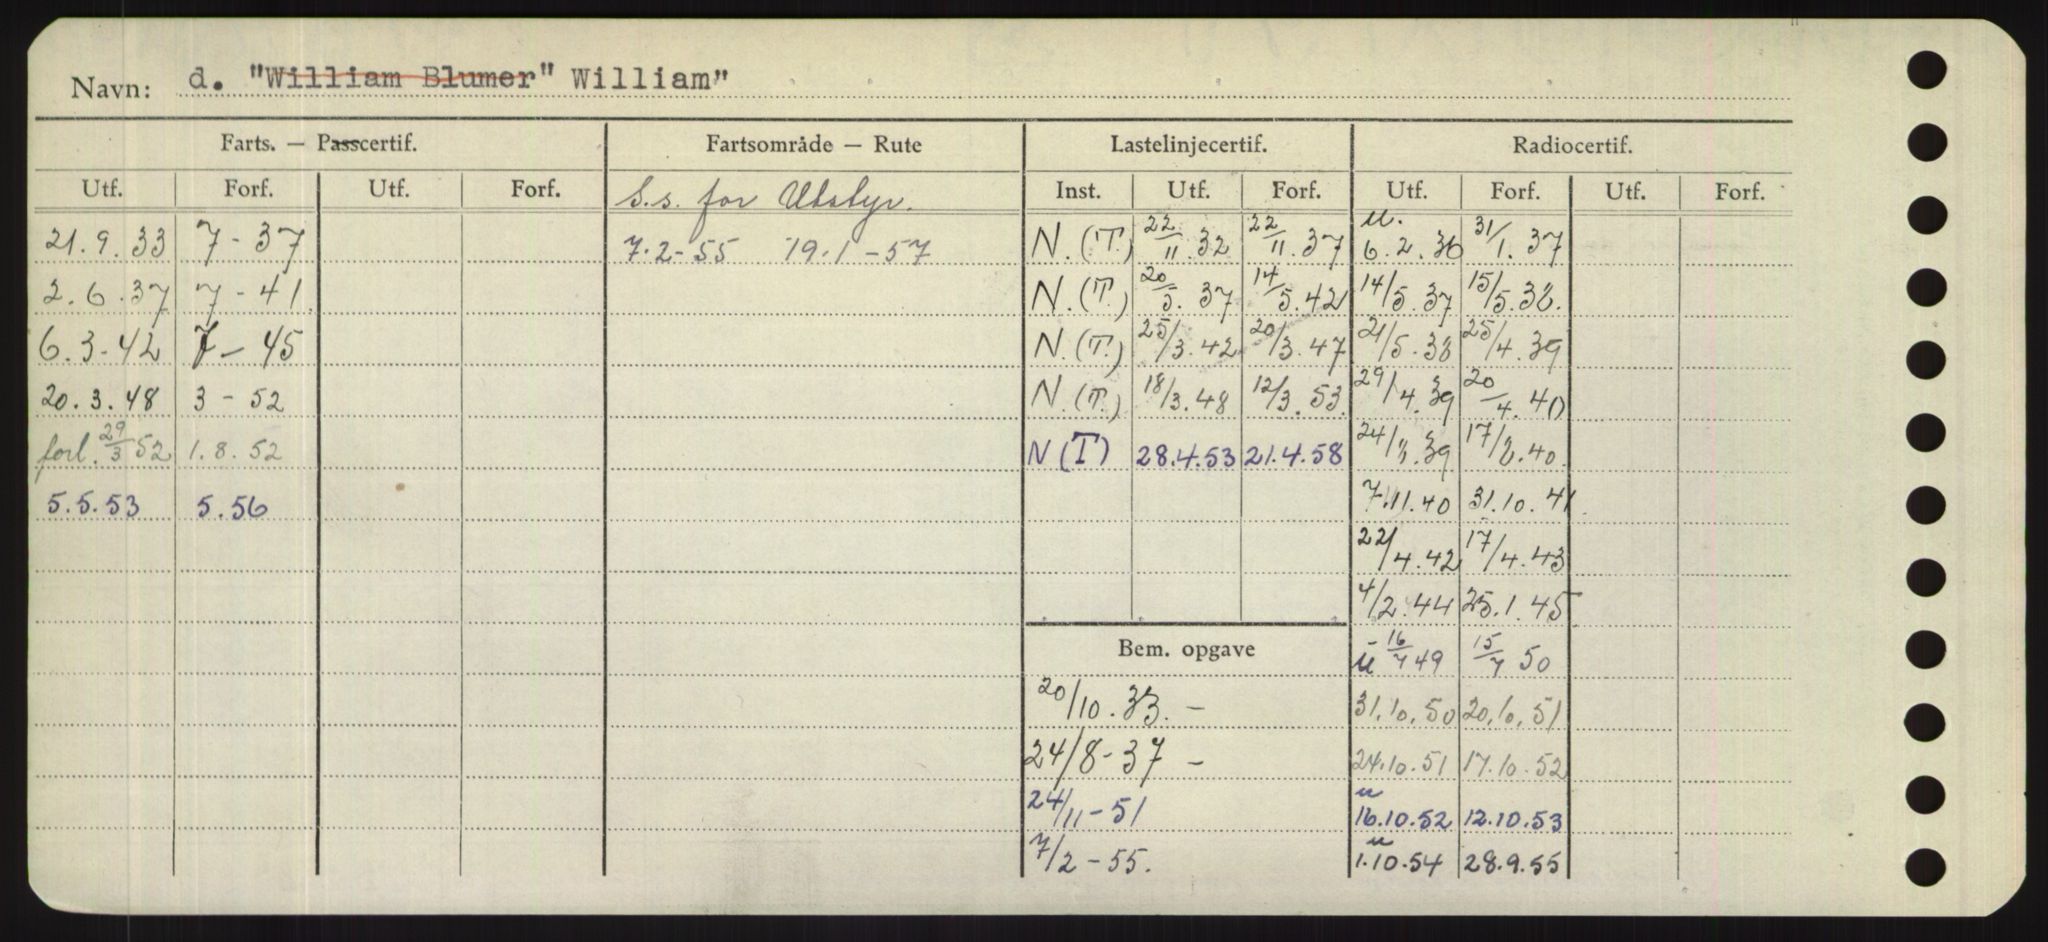 Navn: d. "William Blumer" William"
Farts. — Passcertif. Fartsområde — Rute Lastelinjecertif. Radiocertif.
Utf. Forf. Utf. Forf. S.s. for Utstyr. Inst. Utf. Forf. Utf. Forf. Utf. Forf.
21.9.33 7-37 7.2-55 19.1-57 N.(T.) 22/11.32 22/11.37 u. 6.2.36 31/1.37
2.6.37 7-41 N.(T.) 20/5.37 14/5.42 14/5.37 15/5.38.
6.3-42 7-45 N.(T.) 25/3.42 20/3.47 21/5.38 25/4.39
20.3.48 3-52 N.(T.) 18/3.48 12/3.53 29/4.39 20/4.40
forl. 29/3 52 1.8.52 N(T) 28.4.53 21.4.58 24/ .39 17/8.40
5.5.53 5.56 7.11.40 31.10.41
22/4.42 17/4.43
4/2.44 25.1.45
Bem. opgave u 16/7 49 15/7 50
20/10.33.- 31.10.50 20.10.51
24/8-37 - 24.10.51 17.10.52
24/11-51 u 16.10.52 12.10.53
7/2-55. u 1.10.54 28.9.55